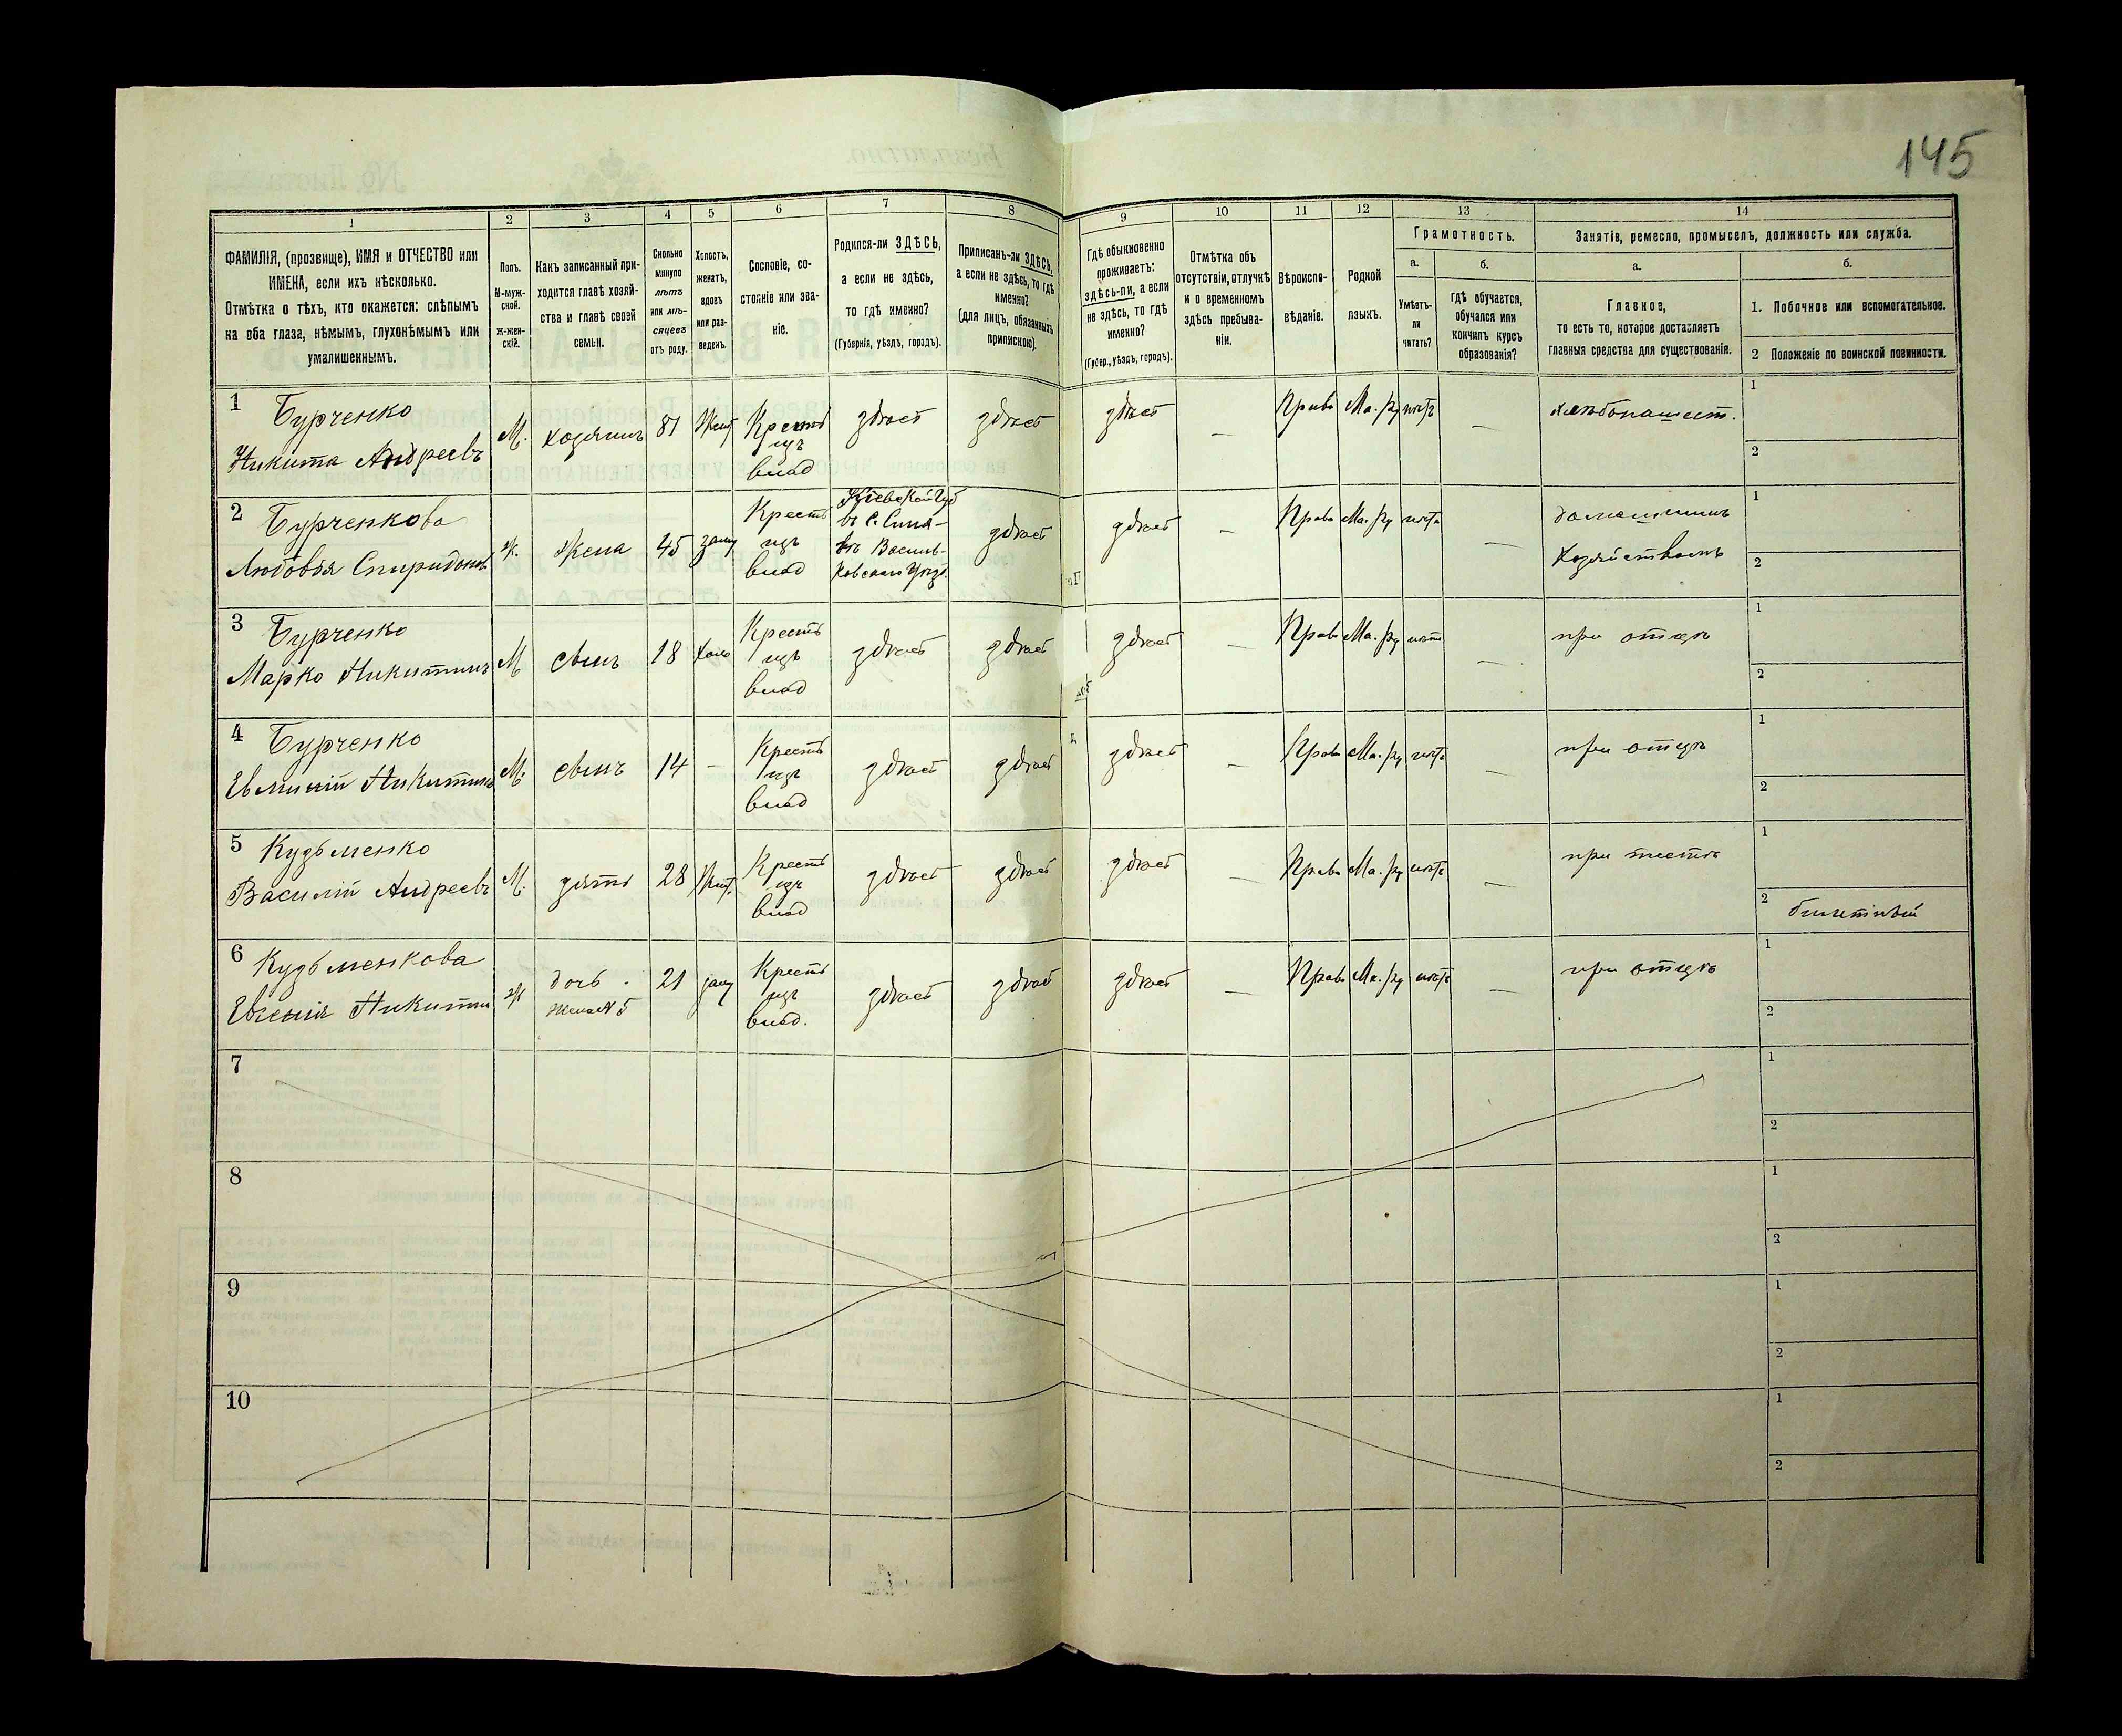 145
1 2 3 4 5 6 7 8 9 10 11 12 13 14
ФАМИЛІЯ, (прозвище), ИМЯ и ОТЧЕСТВО или
ИМЕНА, если ихъ нѣсколько.
Отмѣтка о тѣхъ, кто окажется: слѣпымъ
на оба глаза, нѣмымъ, глухонѣмымъ или
умалишеннымъ.
Полъ.
М-муж-
ской.
Ж-жен-
скій.
Какъ записанный при-
ходится главѣ хозяй-
ства и главѣ своей
семьи.
Сколько
минуло
лѣтъ
или мѣ-
сяцевъ
отъ роду.
Холостъ,
женатъ,
вдовъ
или раз-
веденъ.
Сословіе, со-
стояніе или зва-
ніе.
Родился-ли ЗДѢСЬ,
а если не здѣсь,
то гдѣ именно?
(Губернія, уѣздъ, городъ).
Приписанъ-ли ЗДѢСЬ,
а если не здѣсь, то гдѣ
именно?
(для лицъ, обязанныхъ
припискою).
Гдѣ обыкновенно
проживаетъ:
здѣсь-ли, а если
не здѣсь, то гдѣ
именно?
(Губер., уѣздъ, городъ).
Отмѣтка объ
отсутствіи, отлучкѣ
и о временномъ
здѣсь пребыва-
ніи.
Вѣроиспо-
вѣданіе.
Родной
языкъ.
Грамотность.
а.
Умѣетъ-
ли
читать?
б.
гдѣ обучается,
обучался или
кончилъ курсъ
образованія?
Занятіе, ремесло, промыселъ, должность или служба.
а.
Главное,
то есть то, которое доставляетъ
главныя средства для существованія.
б.
1. Побочное или вспомогательное.
2 Положеніе по воинской повинности.
1 Бурченко
Никита Андреевъ
М. хозяинъ 81 Жен
Крест
изъ
влад
здѣсь здѣсь здѣсь — Право Ма. ру нѣтъ — хлѣбопашест.
1
2
2 Бурченкова
Любовья Спиридонов
Ж. Жена 45 заму
Крест
изъ
влад
Кіевской Губ
въ С. Синя-
вѣ Василь-
ковскаго Уѣзд.
здѣсь здѣсь — Право Ма. ру нѣтъ —
домашнимъ
хозяйствомъ
1
2
3 Бурченко
Марко Никитинъ
М сынъ 18 Холо
Кресть
изъ
влад
здѣсь здѣсь здѣсь — Право Ма. ру нѣтъ — при отцѣ
1
2
4 Бурченко
Евминій Никитинъ
М. сынъ 14 —
Кресть
изъ
влад
здѣсь здѣсь здѣсь — Право Ма. ру нѣтъ — при отцѣ
1
2
5 Кузьменко
Василій Андреевъ
М. зять 28 Жен.
Кресть
изъ
влад
здѣсь здѣсь здѣсь — Право Ма. ру нѣтъ — при тестѣ
1
2 билетный
6 Кузьменкова
Евгенія Никитин
Ж
дочь.
жена № 5
21 заму
Кресть
изъ
влад.
здѣсь здѣсь здѣсь — Право Ма. ру нѣтъ — при отцѣ
1
2
7
1
2
8
1
2
9
1
2
10
1
2